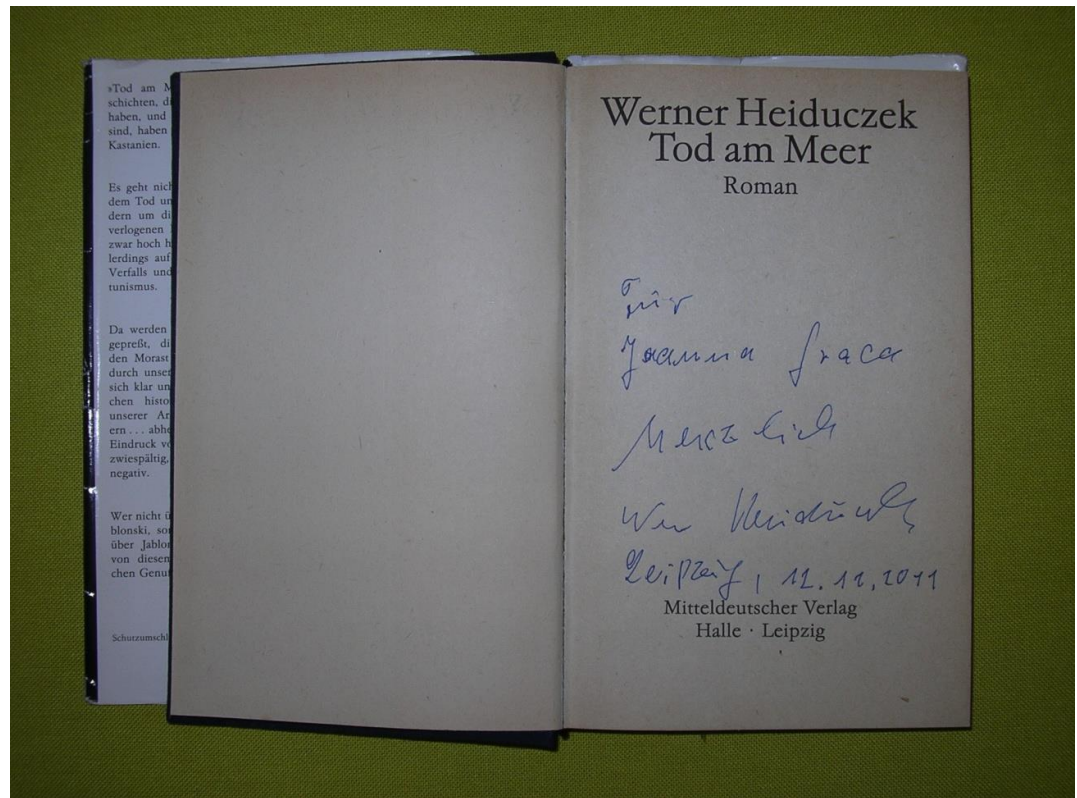 »Tod am M
schichten, di
haben, und
sind, haben
Kastanien.
Es geht nich
dem Tod un
dern um di
verlogenen
zwar hoch h
lerdings auf
Verfalls und
tunismus.
Da werden
gepreßt, di
den Morast
durch unser
sich klar un
chen histo
unserer Ar
ern . . . abhe
Eindruck vo
zwiespältig,
negativ.
Wer nicht ü
blonski, so
über Jablon
von diesen
chen Genuß
Schutzumschl
Werner Heiduczek
Tod am Meer
Roman
Für
Joanna Graca
Herzlich
Wer Heiduczek
Leipzig, 12.12.2011
Mitteldeutscher Verlag
Halle · Leipzig